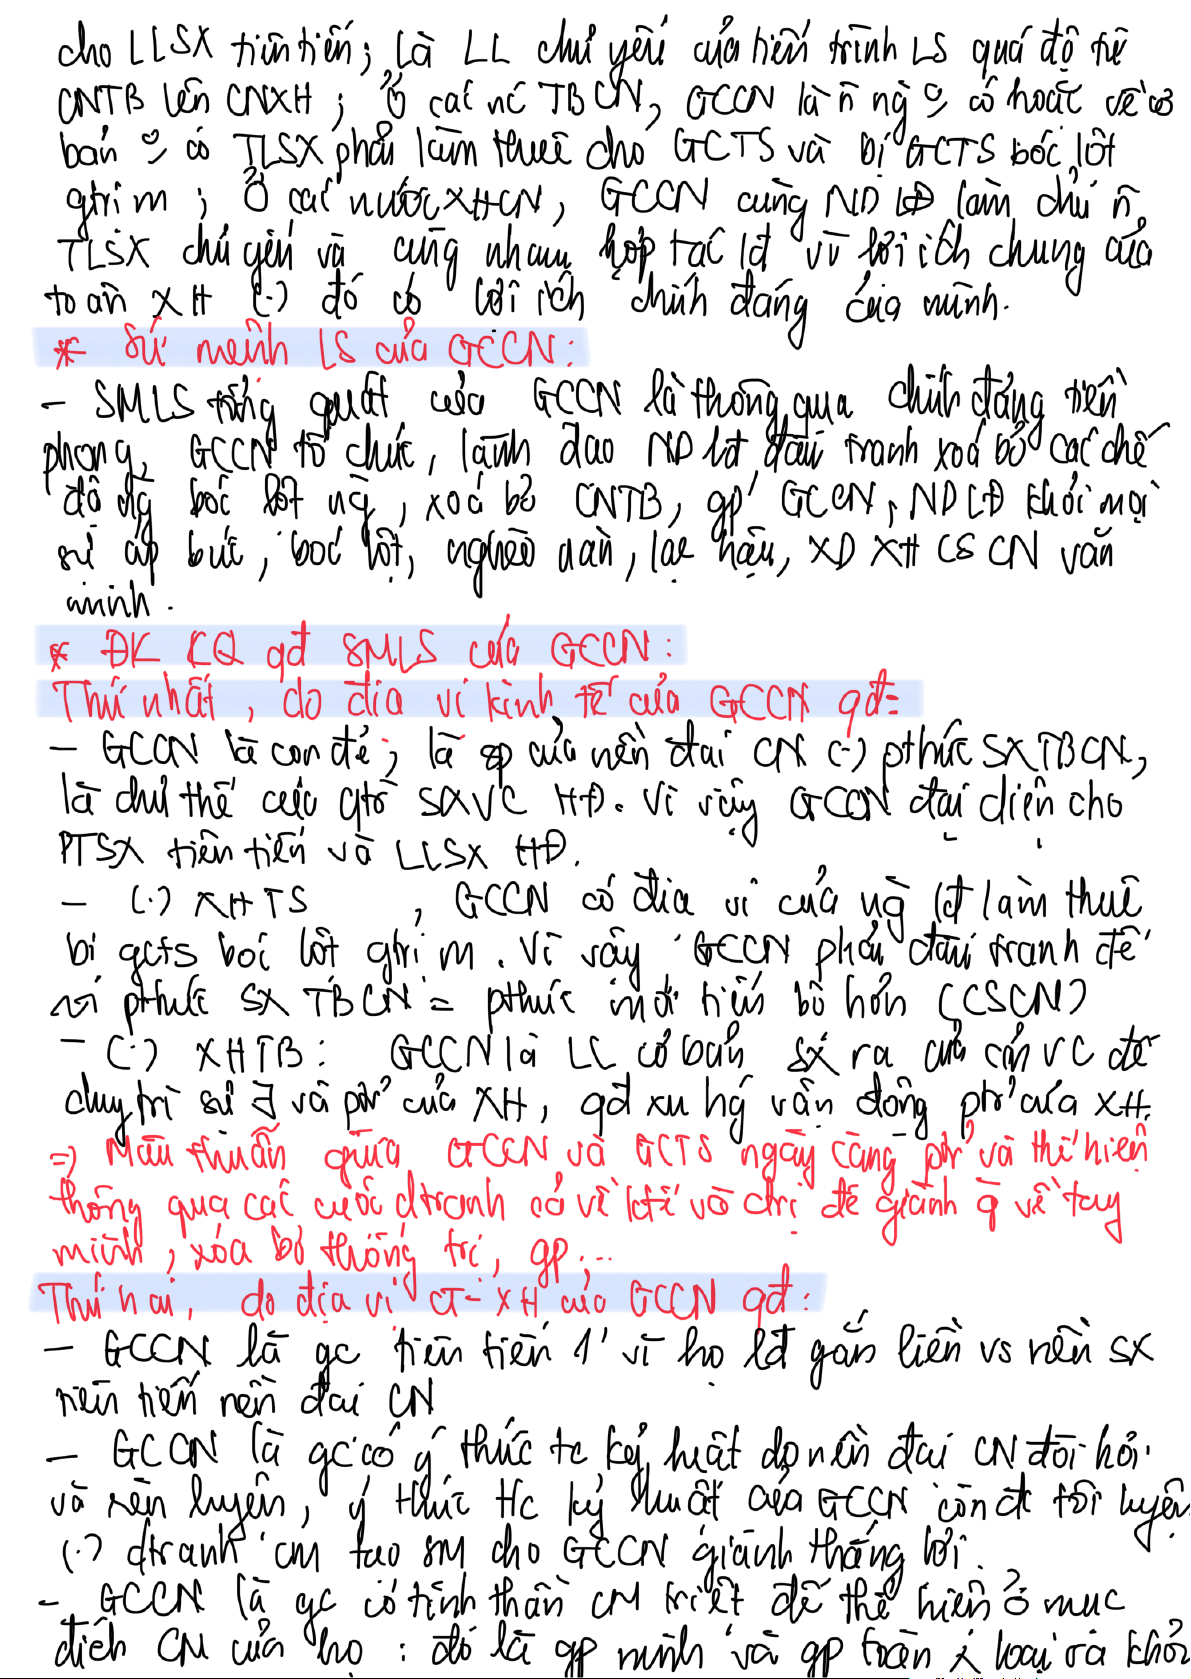 cho LLSX tiên tiến; là LL chủ yếu của tiến trình LS quá độ từ
CNTB lên CNXH; Ở các nc TBCN, GCCN là n ng có hoặc về cơ
bản có TLSX phải làm thuê cho GCTS và bị GCTS bóc lột
gtri m; Ở các nước XHCN, GCCN cùng NDLĐ làm chủ n
TLSX chủ yếu và cùng nhau hợp tác lđ vì lợi ích chung của
toàn XH (·) đó có lợi ích chính đáng của mình.
* Sứ mệnh LS của GCCN:
- SMLS tổng quát của GCCN là thông qua chính đảng tiền
phong, GCCN tổ chức, lãnh đạo ND lđ đấu tranh xoá bỏ các chế
độ ng bóc lột ng, xoá bỏ CNTB, gp GCCN, NDLĐ khỏi mọi
sự áp bức, bóc lột, nghèo nàn, lạc hậu, XD XH CSCN văn
minh.
* ĐK KQ qđ SMLS của GCCN:
Thứ nhất, do địa vị kinh tế của GCCN qđ:
- GCCN là con đẻ, là sp của nền đại CN (·) pthức SX TBCN,
là chủ thể của qtr SXVC HĐ. Vì vậy GCCN đại diện cho
PTSX tiên tiến và LLSX HĐ.
- (·) XHTS, GCCN có địa vị của ng lđ làm thuê
bị gcts bóc lột gtri m. Vì vậy GCCN phải đấu tranh để
pthức SX TBCN = pthức mới tiến bộ hơn (CSCN)
- (·) XHTB: GCCN là LL cơ bản sx ra của cải VC để
duy trì sự ∃ và ptr của XH, qđ xu hg vận động ptr của XH.
=> Mâu thuẫn giữa GCCN và GCTS ngày càng ptr và thể hiện
thông qua các cuộc dtranh cả về ktế và ctrị để giành q về tay
mình, xóa bỏ thống trị, gp,...
Thứ hai, do địa vị CT-XH của GCCN qđ:
- GCCN là gc tiên tiến 1' vì họ lđ gắn liền vs nền SX
tiên tiến nền đại CN
- GCCN là gc có ý thức tc kỷ luật do nền đại CN đòi hỏi
và rèn luyện, ý thức tc kỷ luật của GCCN còn đc tôi luyện
(·) dtranh cm tạo sm cho GCCN giành thắng lợi.
- GCCN là gc có tinh thần CM triệt để thể hiện ở mục
đích CM của họ: đó là gp mình và gp toàn loại ra khỏi